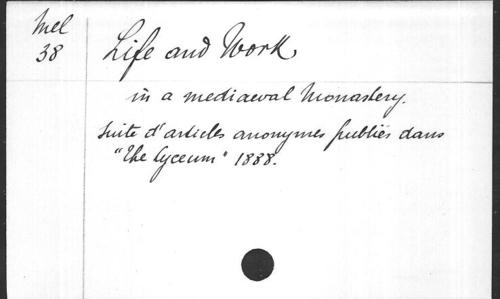 Mel
38
Life and Work
in a mediaeval Monastery.
Suite d'articles anonymes publiés dans
"The Lyceum" 1888.